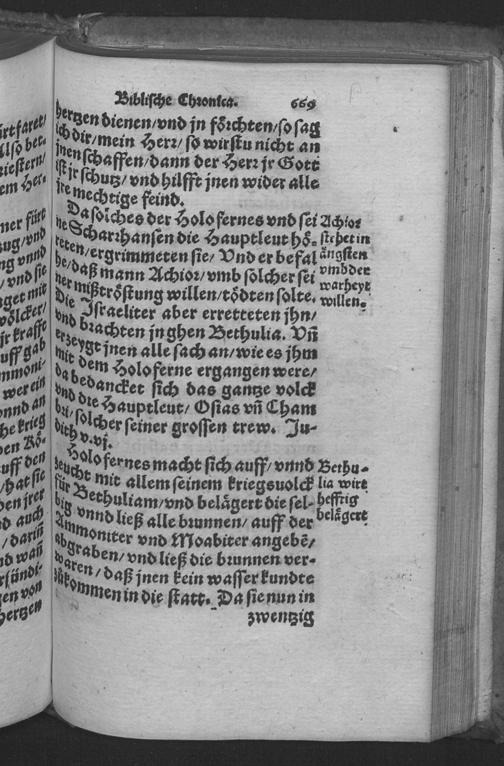 rt faret/
Also be-
riestern/
em Her-
ner fürt
zug/vnd
ng vnnd
/ vnd sie
get mit
völcker/
jr krafft
auff gab
mmoni-
wer ein
vnnd an
he krieg
en Kö-
auff den
/hat sie
den jrer
d auch
/ darin̄
nd wan̄
r sündi-
en von
hertzen
Biblische Chronica. 669
hertzen dienen/vnd jn förchten/so sag
ich dir/mein Herr/ so wirstu nicht an
jnen schaffen/dann der Herr jr Gott
ist jr schutz/ vnd hilfft jnen wider alle
jre mechtige feind.
Da solches der Holofernes vnd sei
ne Scharrhansen die Hauptleut hö-
reten/ergrimmeten sie/ Vnd er befal
he/daß mann Achior/vmb solcher sei
ner mißtröstung willen/tödten solte.
Die Israeliter aber erretteten jhn/
vnd brachten jn ghen Bethulia. Vn̄
erzeygt jnen alle sach an/wie es jhm
mit dem Holoferne ergangen were/
da bedancket sich das gantze volck
vnd die Hauptleut/ Osias vn̄ Cham
bri/solcher seiner grossen trew. Ju-
dith v.vj.
Achior
stehet in
ängsten
vmb der
warheyt
willen.
Holofernes macht sich auff/vnnd
zeucht mit allem seinem kriegsuolck
für Bethuliam/vnd belägert die sel-
big vnnd ließ alle brunnen/ auff der
Ammoniter vnd Moabiter angebē/
abgraben/vnd ließ die brunnen ver-
waren/ daß jnen kein wasser kundte
zůkommen in die statt. Da sie nun in
zwentzig
Bethu-
lia wirt
hefftig
belägert